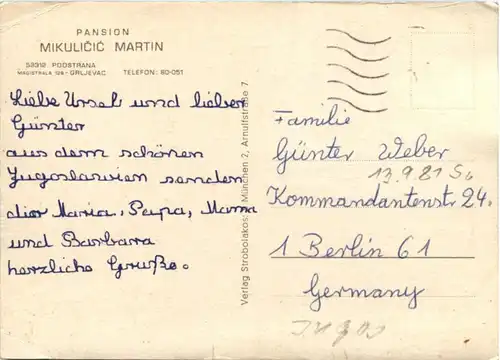 PANSION
MIKULIČIĆ MARTIN
58312 PODSTRANA
MAGISTRALA 128 - GRLJEVAC TELEFON: 80-051
Liebe Ursel und lieber
Günter
aus dem schönen
Jugoslawien senden
dior Maria, Papa, Mama
und Barbara
herzliche Grüße.
Verlag Strobolakos, München 2, Arnulfstraße 7
Familie
Günter Weber
13.9.81 So
Kommandantenstr 24.
1 Berlin 61
Germany
Jugos